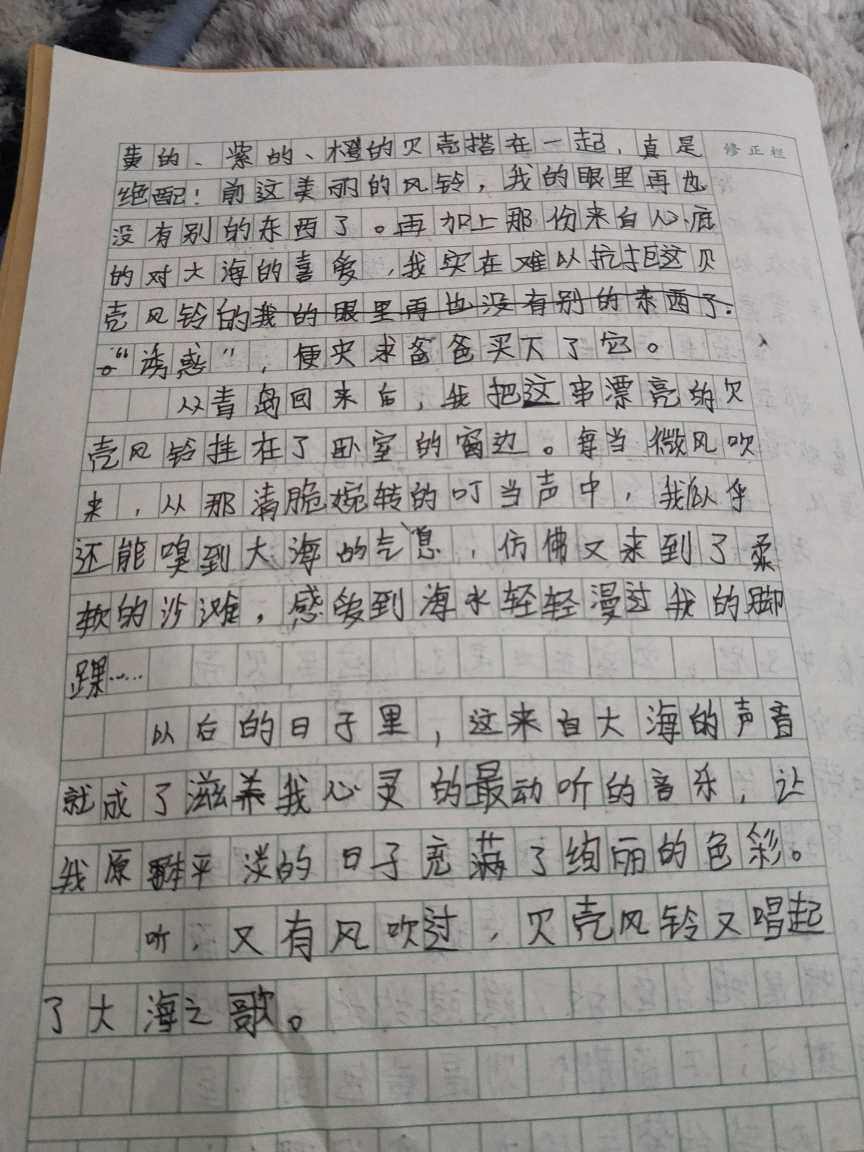 黄的、紫的、橙的贝壳搭在一起，真是
修正栏
绝配！前这美丽的风铃，我的眼里再也
没有别的东西了。再加上那份来自心底
的对大海的喜爱，我实在难以抗拒这贝
壳风铃的我的眼里再也没有别的东西了.
。“诱惑”，便央求爸爸买下了它。
从青岛回来后，我把这串漂亮的贝
壳风铃挂在了卧室的窗边。每当微风吹
来，从那清脆婉转的叮当声中，我似乎
还能嗅到大海的气息，仿佛又来到了柔
软的沙滩，感受到海水轻轻漫过我的脚
踝……
以后的日子里，这来自大海的声音
就成了滋养我心灵的最动听的音乐，让
我原本平淡的日子充满了绚丽的色彩。
听，又有风吹过，贝壳风铃又唱起
了大海之歌。